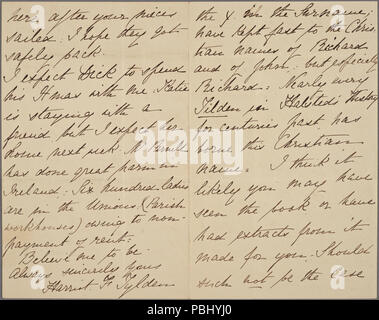 her, after your nieces
sailed. I hope they got
safely back.
I expect Dick to spend
his Xmas with me. Katie
is staying with a
friend but I expect her
home next week. Mr Parnell
has done great harm in
Ireland. Six hundred ladies
are in the Unions (Parish
workhouses) owing to non-
payment of rent.
Believe me to be
Always sincerely yours
Harriet F Tylden
the y in the Surname;
have kept fast to the Chris-
tian names of Richard
and of John: but especially
Richard. Nearly every
Tilden in Halsted's History
for centuries past has
borne this Christian
name. I think it
likely you may have
seen the book or have
had extracts from it
made for you. Should
such not be the case
alamy
Image ID: PBHYJ0
www.alamy.com